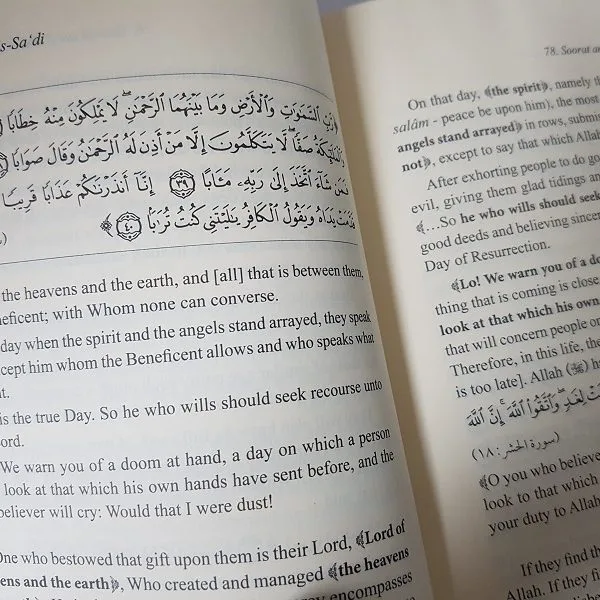 s-Sa‘di
﴿رَّبِّ ٱلسَّمَٰوَٰتِ وَٱلْأَرْضِ وَمَا بَيْنَهُمَا ٱلرَّحْمَٰنِ ۖ لَا يَمْلِكُونَ مِنْهُ خِطَابًا
وَٱلْمَلَٰٓئِكَةُ صَفًّا ۖ لَّا يَتَكَلَّمُونَ إِلَّا مَنْ أَذِنَ لَهُ ٱلرَّحْمَٰنُ وَقَالَ صَوَابًا
فَمَن شَآءَ ٱتَّخَذَ إِلَىٰ رَبِّهِۦ مَـَٔابًا ٣٩ إِنَّآ أَنذَرْنَٰكُمْ عَذَابًا قَرِيبًا
قَدَّمَتْ يَدَاهُ وَيَقُولُ ٱلْكَافِرُ يَٰلَيْتَنِى كُنتُ تُرَٰبًۢا ٤٠﴾
the heavens and the earth, and [all] that is between them,
eficent; with Whom none can converse.
day when the spirit and the angels stand arrayed, they speak
cept him whom the Beneficent allows and who speaks what
t.
is the true Day. So he who wills should seek recourse unto
ord.
We warn you of a doom at hand, a day on which a person
look at that which his own hands have sent before, and the
believer will cry: Would that I were dust!
One who bestowed that gift upon them is their Lord, ﴾Lord of
ens and the earth﴿, Who created and managed ﴾the heavens
encompasses
78. Soorat an
On that day, ﴾the spirit﴿, namely th
salâm - peace be upon him), the most
angels stand arrayed﴿ in rows, submis
not﴿, except to say that which Allah
After exhorting people to do go
evil, giving them glad tidings and
﴾…So he who wills should seek
good deeds and believing sincer
Day of Resurrection.
﴾Lo! We warn you of a do
thing that is coming is close
look at that which his own
that will concern people on
Therefore, in this life, the
is too late]. Allah (ﷻ) h
لِغَدٍ ۖ وَٱتَّقُوا۟ ٱللَّهَ ۚ إِنَّ ٱللَّهَ
(سورة الحشر: ١٨)
﴾O you who believe
look to that which
your duty to Allah
If they find th
Allah. If they fin